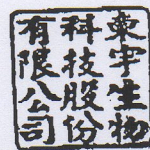 東宇生物
科技股份
有限公司